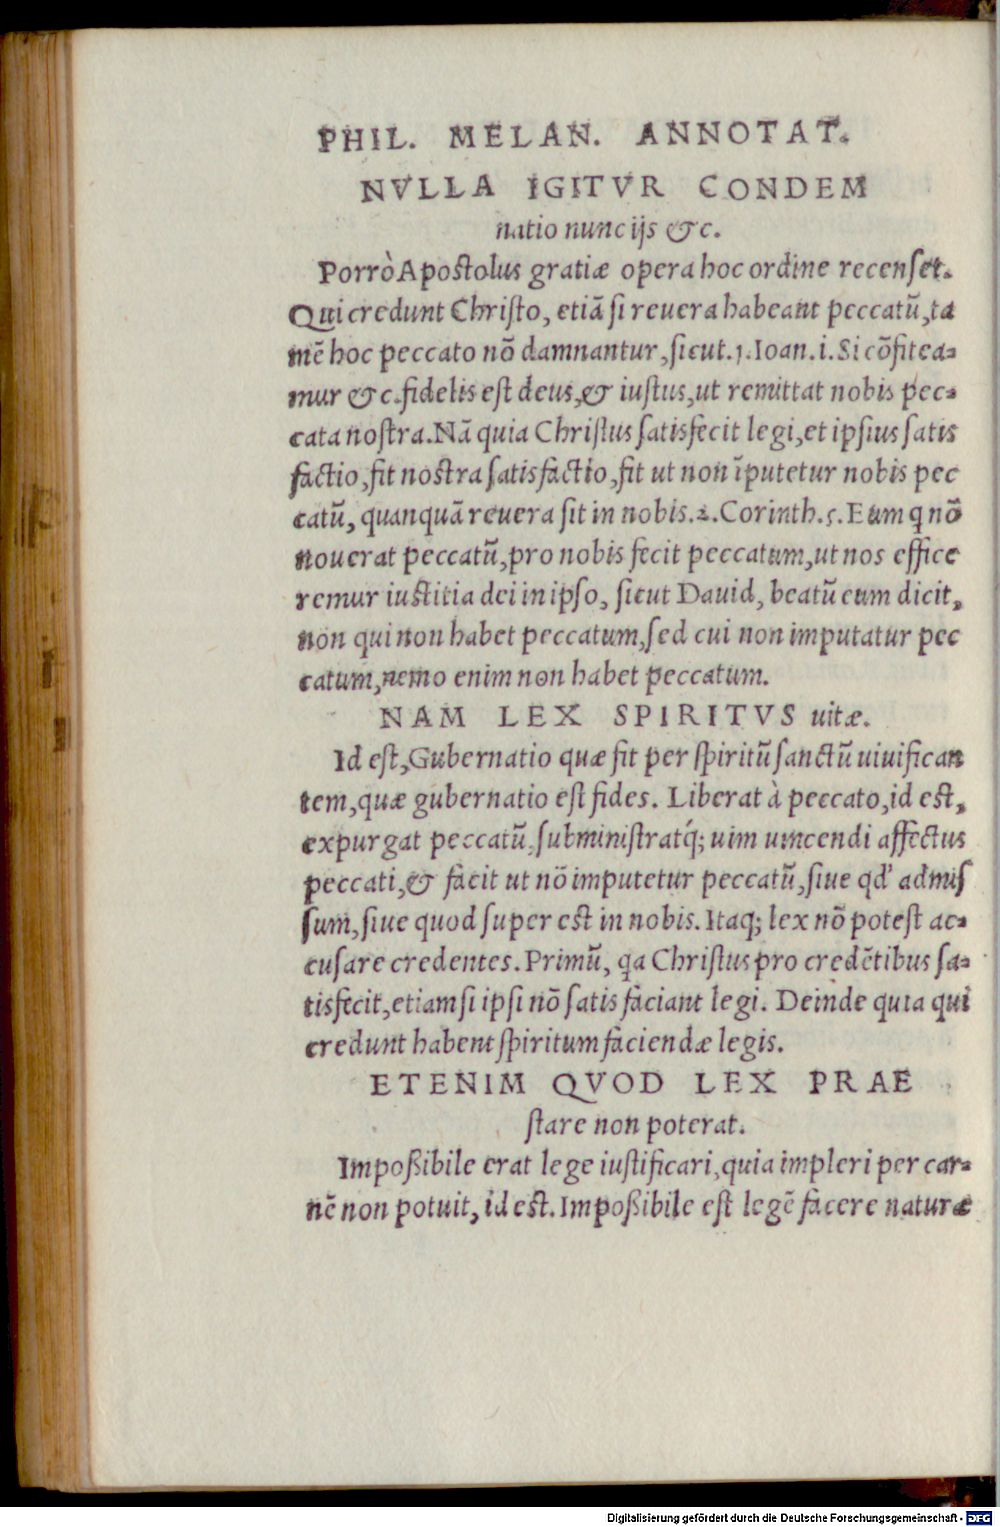 PHIL. MELAN. ANNOTAT.
NVLLA IGITVR CONDEM
natio nunc ijs &c.
Porrò Apostolus gratiæ opera hoc ordine recenset.
Qui credunt Christo, etiã si reuera habeant peccatũ, ta
mẽ hoc peccato nõ damnantur, sicut. 1. Ioan. i. Si cõfitea-
mur &c. fidelis est deus, & iustus, ut remittat nobis pec-
cata nostra. Nã quia Christus satisfecit legi, et ipsius satis
factio, fit nostra satisfactio, fit ut non ĩputetur nobis pec
catũ, quanquã reuera sit in nobis. 2. Corinth. 5. Eum q nõ
nouerat peccatũ, pro nobis fecit peccatum, ut nos effice
remur iustitia dei in ipso, sicut Dauid, beatũ eum dicit,
non qui non habet peccatum, sed cui non imputatur pec
catum, nemo enim non habet peccatum.
NAM LEX SPIRITVS uitæ.
Id est, Gubernatio quæ fit per spiritũ sanctũ uiuifican
tem, quæ gubernatio est fides. Liberat à peccato, id est,
expurgat peccatũ, subministratq́; uim uincendi affectus
peccati, & facit ut nõ imputetur peccatũ, siue qd' admis
sum, siue quod super est in nobis. Itaq; lex nõ potest ac-
cusare credentes. Primũ, qa Christus pro credẽtibus sa-
tisfecit, etiamsi ipsi nõ satis faciant legi. Deinde quia qui
credunt habent spiritum faciendæ legis.
ETENIM QVOD LEX PRAE
stare non poterat.
Impoßibile erat lege iustificari, quia impleri per car-
nẽ non potuit, id est. Impoßibile est legẽ facere naturæ
Digitalisierung gefördert durch die Deutsche Forschungsgemeinschaft - DFG